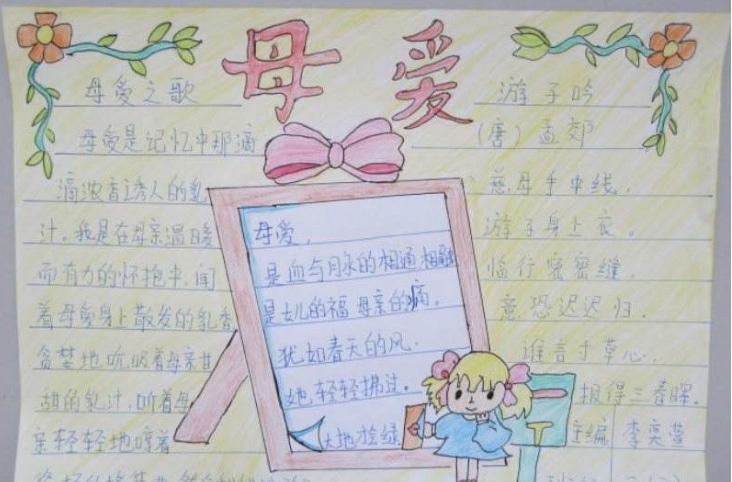 母爱
母爱之歌
母爱是记忆中那滴
滴浓香诱人的乳
汁。我是在母亲温暖
而有力的怀抱中,闻
着母亲身上散发的乳香
贪婪地吮吸着母亲甘
甜的乳汁,听着母
亲轻轻地哼着
母爱,
是血与月永的相通相融
是女儿的福母亲的痛。
犹如春天的风.
她,轻轻拂过。
大地捡绿
游子吟
(唐)孟郊
慈母手中线,
游子身上衣。
临行密密缝,
意恐迟迟归.
谁言寸草心,
报得三春晖。
主编 李奕萱